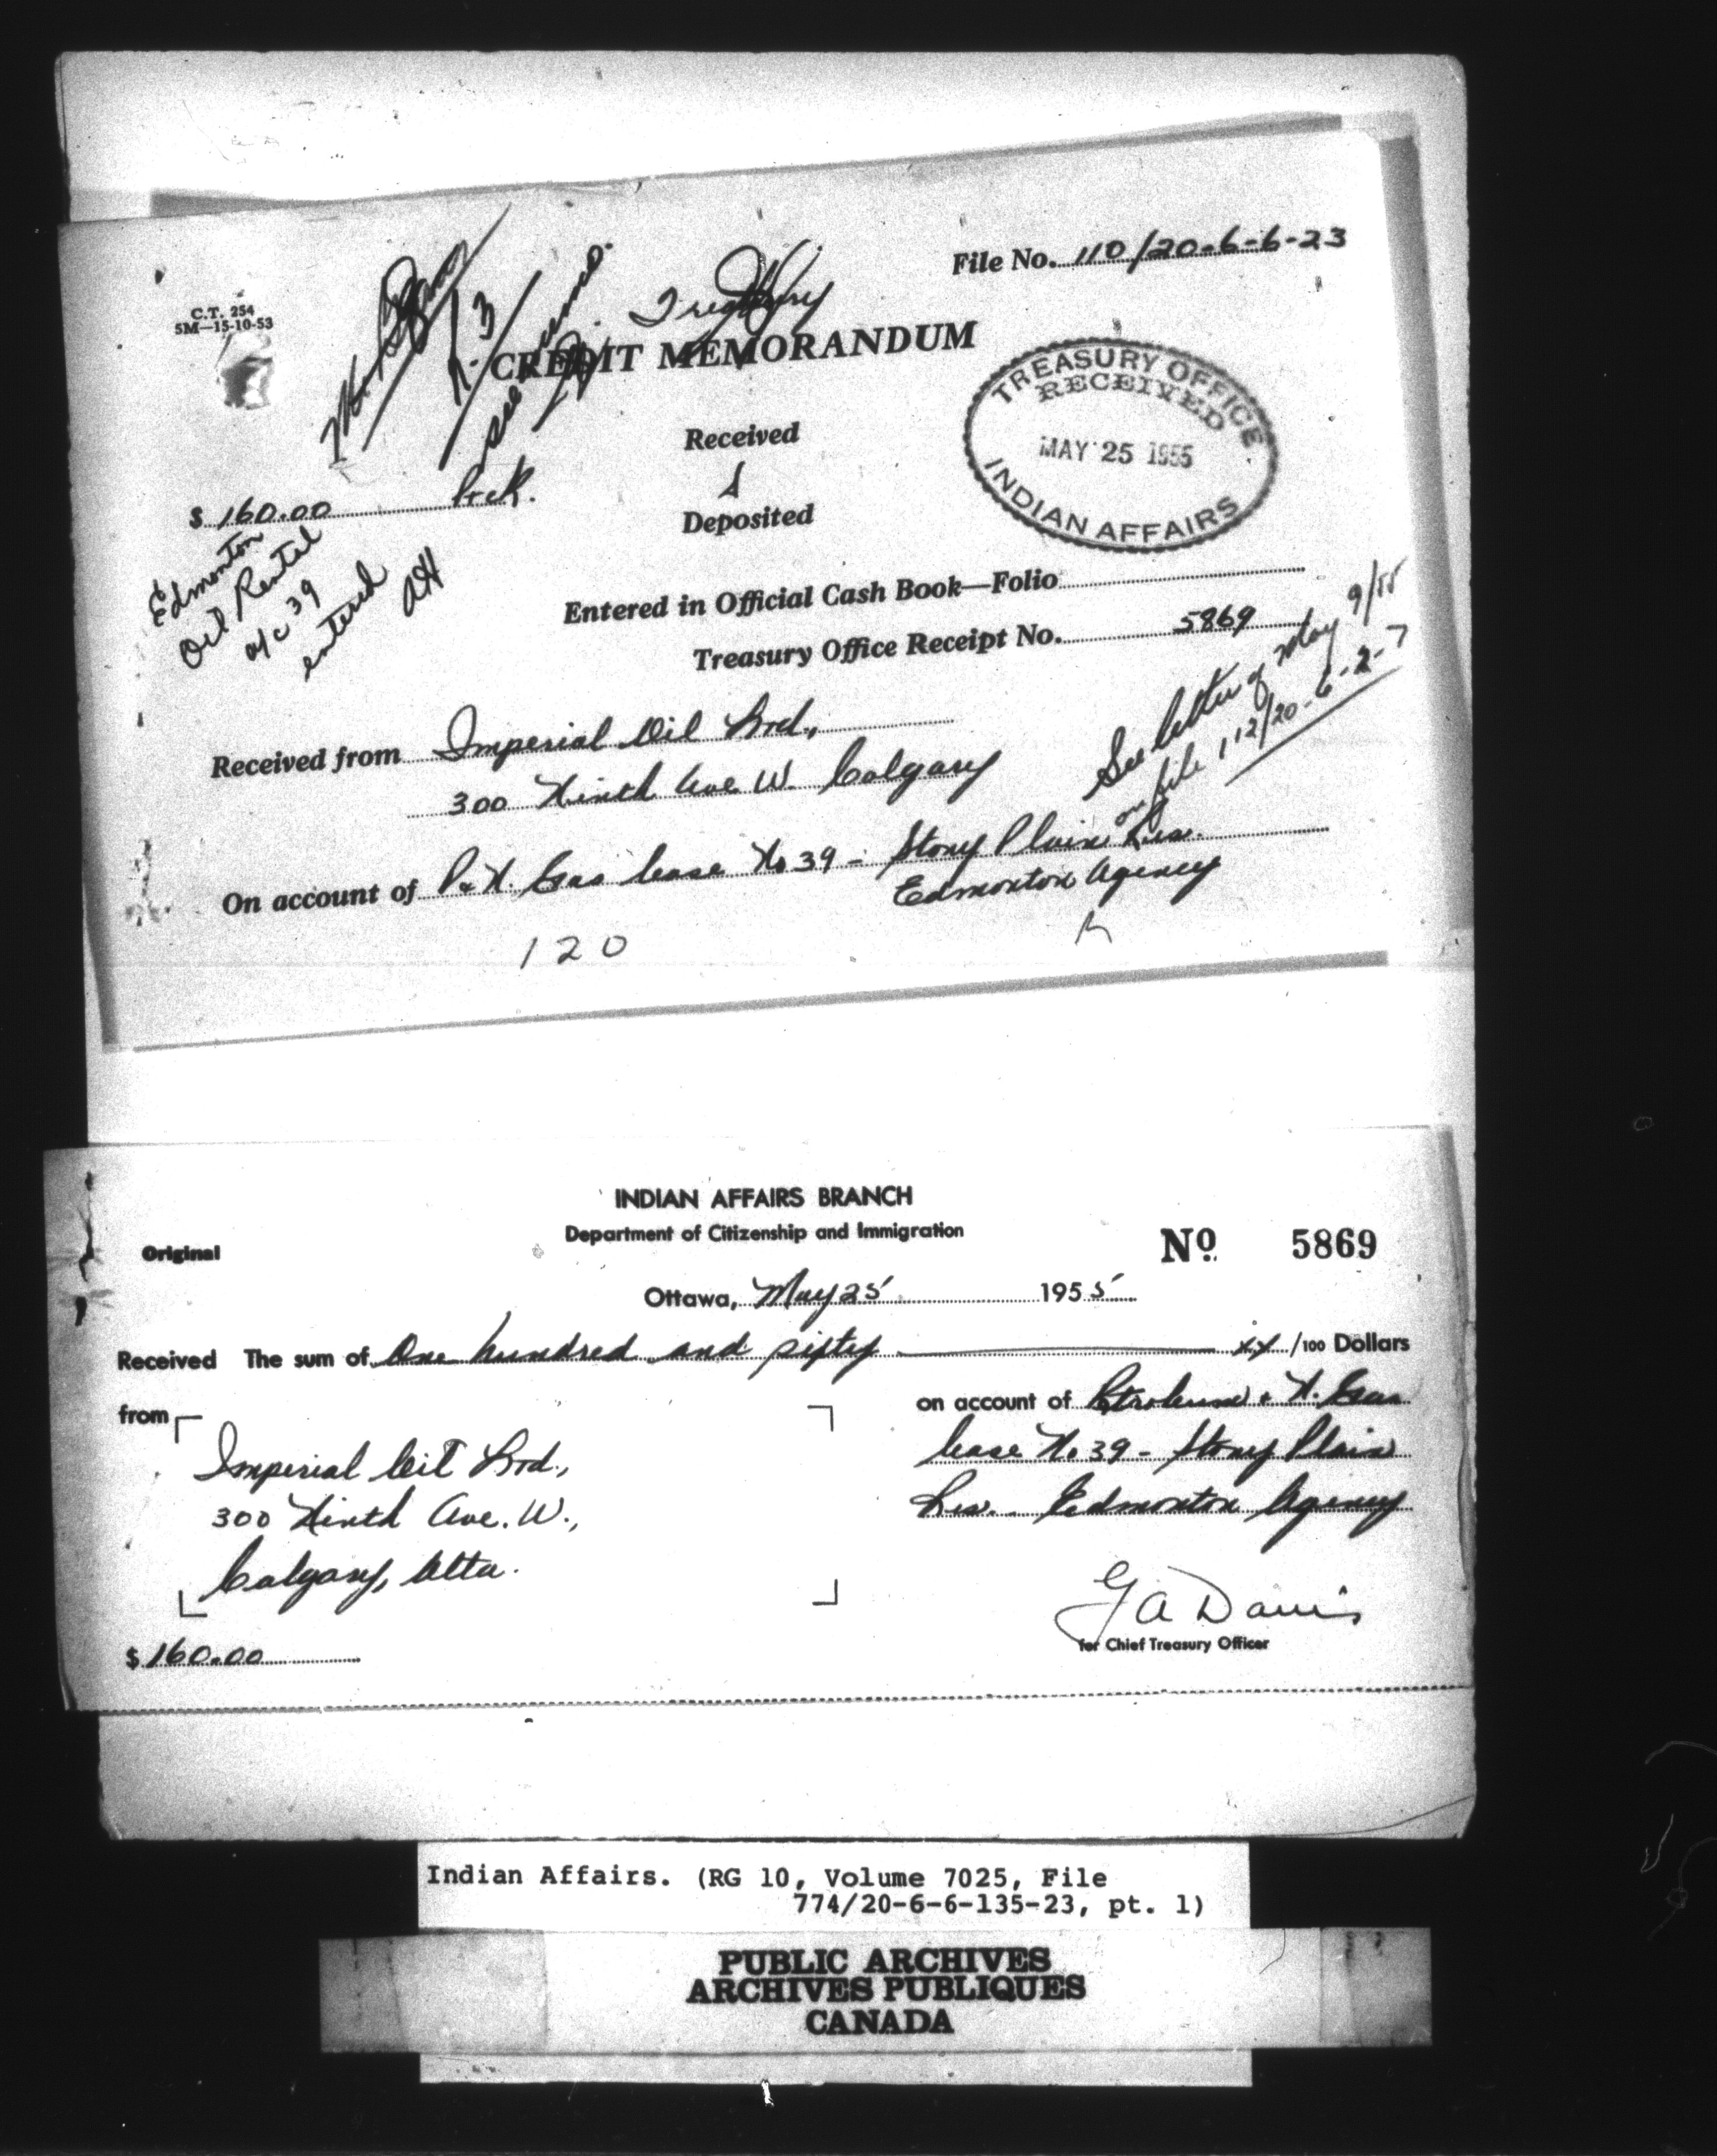 File No. 110/20-6-6-23
C.T. 254
5M—15-10-53
R-3
Treasury
CREDIT MEMORANDUM
TREASURY OFFICE
RECEIVED
MAY 25 1955
INDIAN AFFAIRS
Received
&
Deposited
$ 160.00
Edmonton
Oil Rental
a/c 39
entered
AH
Entered in Official Cash Book—Folio
Treasury Office Receipt No. 5869
See letter of May 9/55
on file 112/20-6-2-7
Received from Imperial Oil Ltd.,
300 Ninth Ave W. Calgary
On account of P & N. Gas lease No 39 - Stony Plain Res.
Edmonton Agency
120
INDIAN AFFAIRS BRANCH
Department of Citizenship and Immigration
Original
No. 5869
Ottawa, May 25 1955
Received The sum of One hundred and sixty xx/100 Dollars
from
Imperial Oil Ltd.,
300 Ninth Ave. W.,
Calgary, Alta.
on account of Petroleum & N. Gas
lease No 39 - Stony Plain
Res. Edmonton Agency
G A Davis
for Chief Treasury Officer
$ 160.00
Indian Affairs. (RG 10, Volume 7025, File
774/20-6-6-135-23, pt. 1)
PUBLIC ARCHIVES
ARCHIVES PUBLIQUES
CANADA